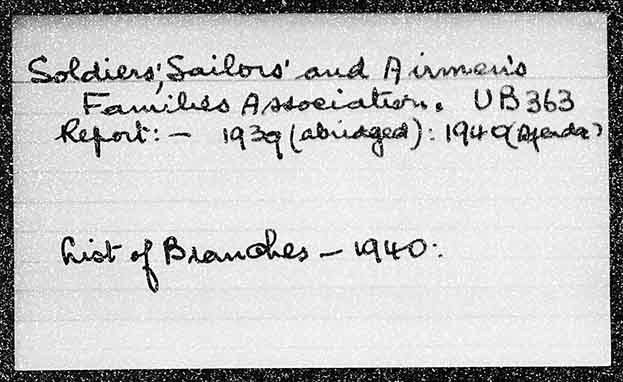 Soldiers', Sailors' and Airmen's
Families Association. UB363
Report: – 1939 (abridged): 1940 (Agenda)
List of Branches – 1940: